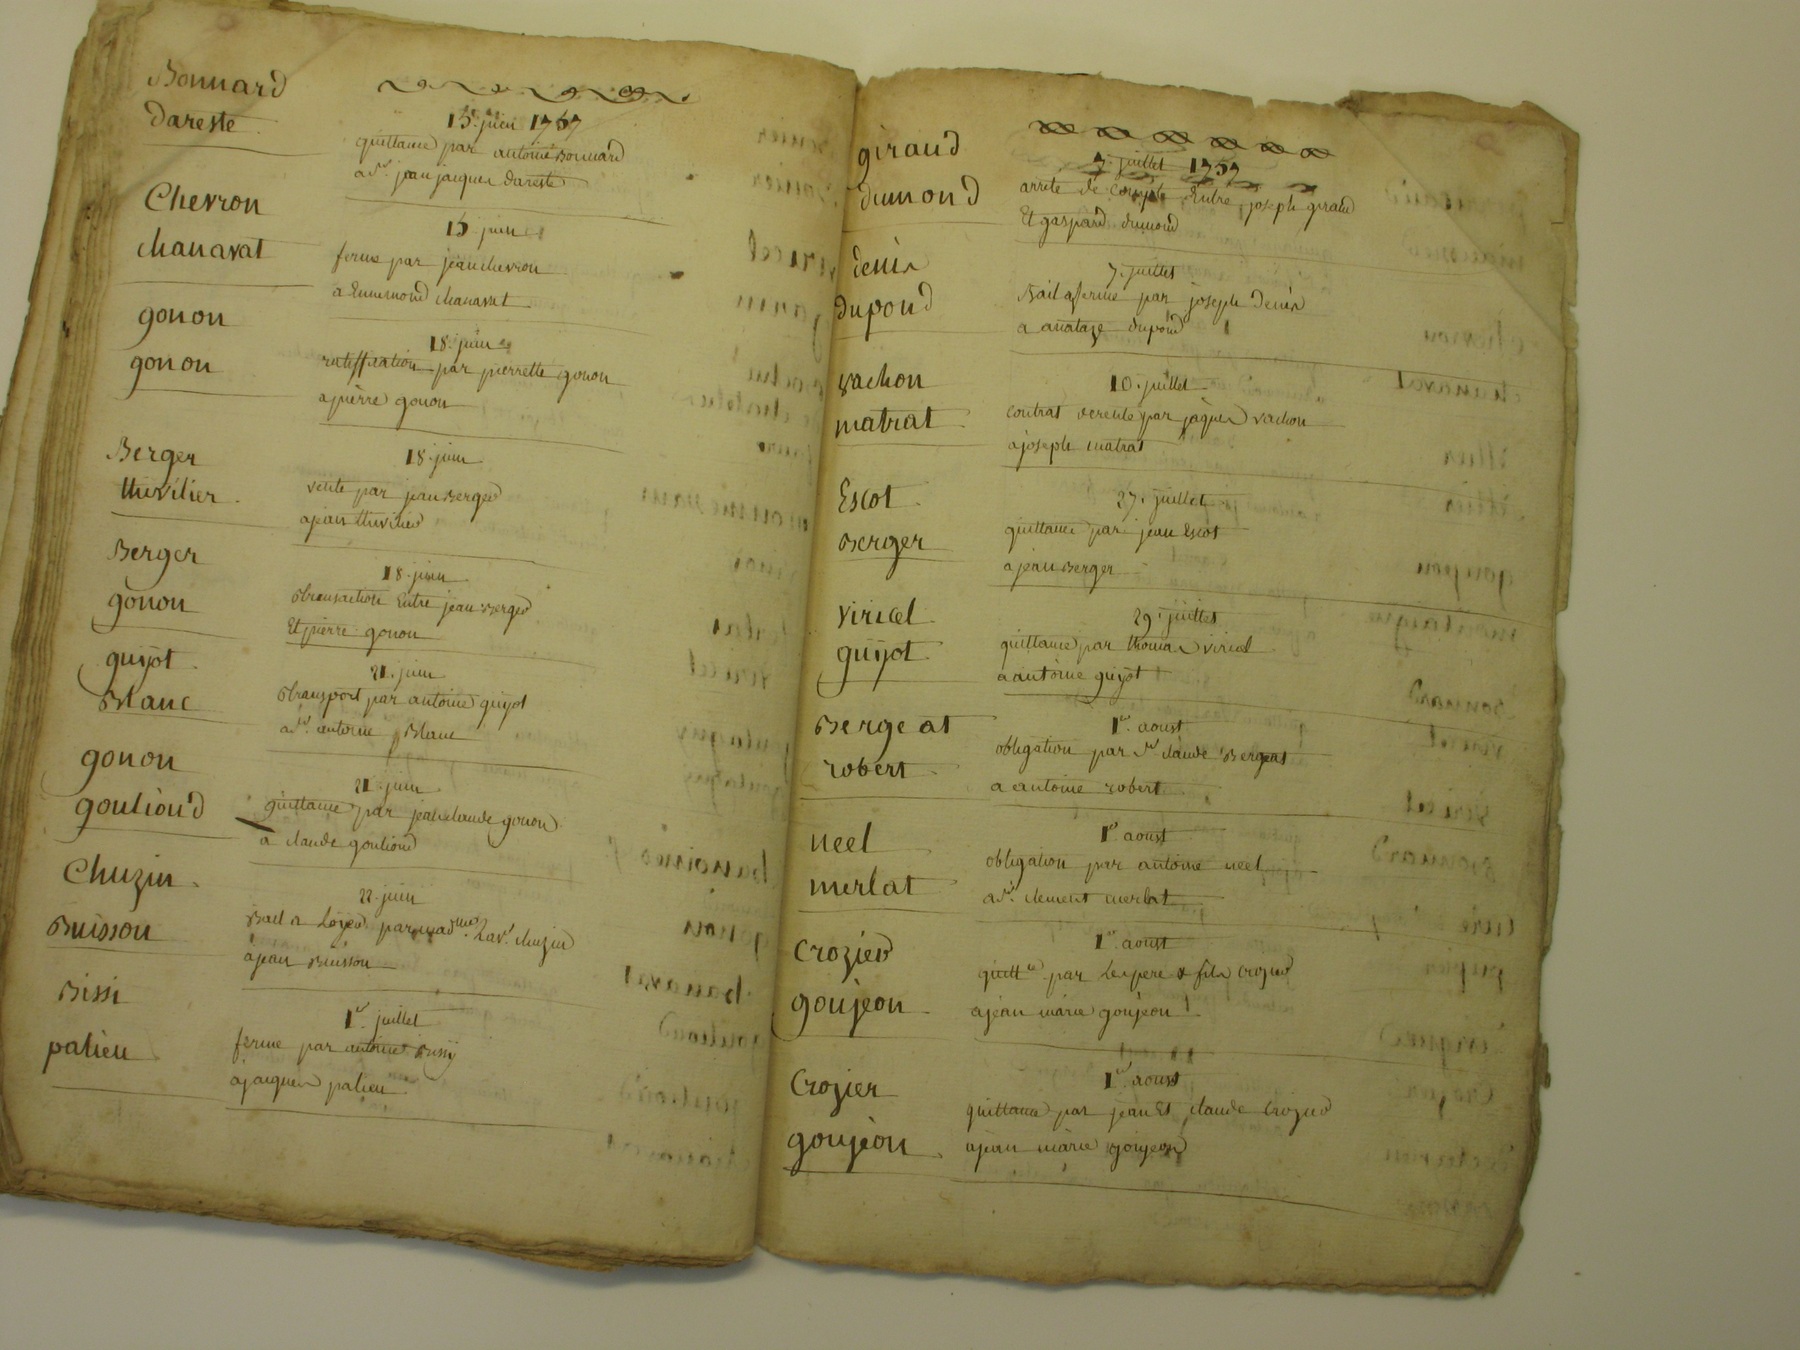 Bonnard
dareste
15. juin 1757
quittance par antoine Bonnard
a Sr. jean jacques dareste
Chevron
chanavat
15. juin
ferme par jean chevron
a Ennemond chanavat
gonon
gonon
18. juin
ratiffication par pierrette gonon
a pierre gonon
Berger
thevilier
18. juin
vente par jean Berger
a jean thevilier
Berger
gonon
18. juin
transaction Entre jean Berger
Et pierre gonon
guyot
Blanc
21. juin
transport par antoine guyot
a Sr. antoine Blanc
gonon
gouliond
21. juin
quittance par jean claude gonon
a claude gouliond
Chuzin
Buisson
22. juin
Bail a Loyer par mad.me chuzin
a jean Buisson
Bissi
palieu
1er. juillet
ferme par antoine Bissy
a jacques palieu
giraud
dumond
7. juillet 1757
arrete de compte Entre joseph giraud
Et gaspard dumond
denis
dupond
7. juillet
Bail a ferme par joseph denis
a anataze dupond
vachon
matrat
10. juillet
contrat de vente par jaques vachon
a joseph matrat
Escot
Berger
27. juillet
quittance par jean Escot
a jean Berger
viricel
guyot
29. juillet
quittance par thomas viricel
a antoine guyot
Bergeat
robert
1er. aoust
obligation par Sr. claude Bergeat
a antoine robert
neel
merlat
1er. aoust
obligation par antoine neel
a Sr. clement merlat
Crozier
goujeon
1er. aoust
quitt.ce par Les pere & fils crozier
a jean marie goujeon
Crozier
goujeon
1er. aoust
quittance par jean Et claude Crozier
a jean marie goujeon